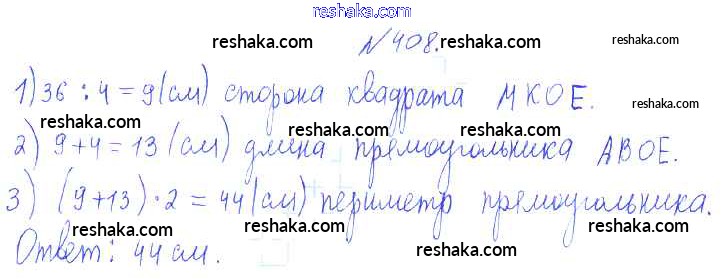 reshaka.com
№408.
reshaka.com reshaka.com
1) 36 : 4 = 9 (см) сторона квадрата МКОЕ.
reshaka.com reshaka.com reshaka.com
2) 9 + 4 = 13 (см) длина прямоугольника АВОЕ.
reshaka.com reshaka.com reshaka.com
3) (9 + 13) · 2 = 44 (см) периметр прямоугольника.
reshaka.com reshaka.com reshaka.com
Ответ: 44 см.
reshaka.com reshaka.com reshaka.com